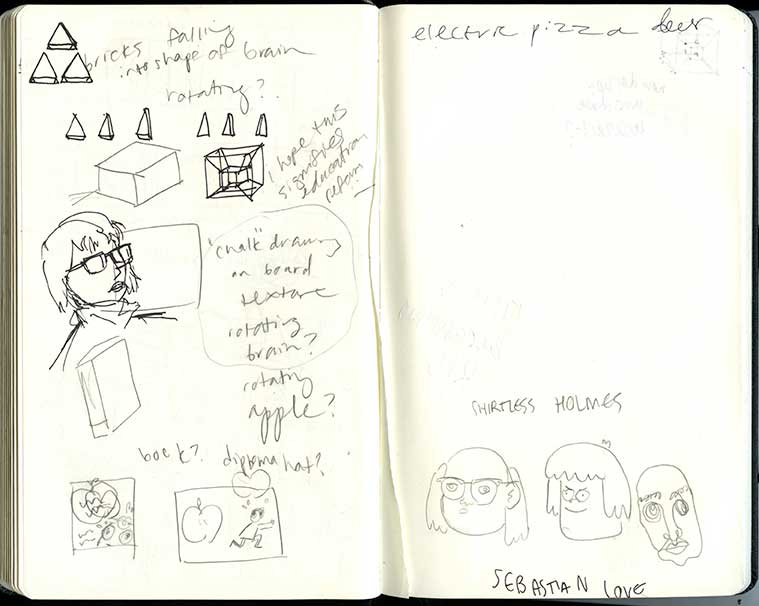 bricks falling
into shape of brain
rotating?
I hope this
signifies
education
reform
"chalk" drawing
on board
texture
rotating
brain?
rotating
apple?
book? diploma hat?
electric pizza beer
SHIRTLESS HOLMES
SEBASTIAN LOVE